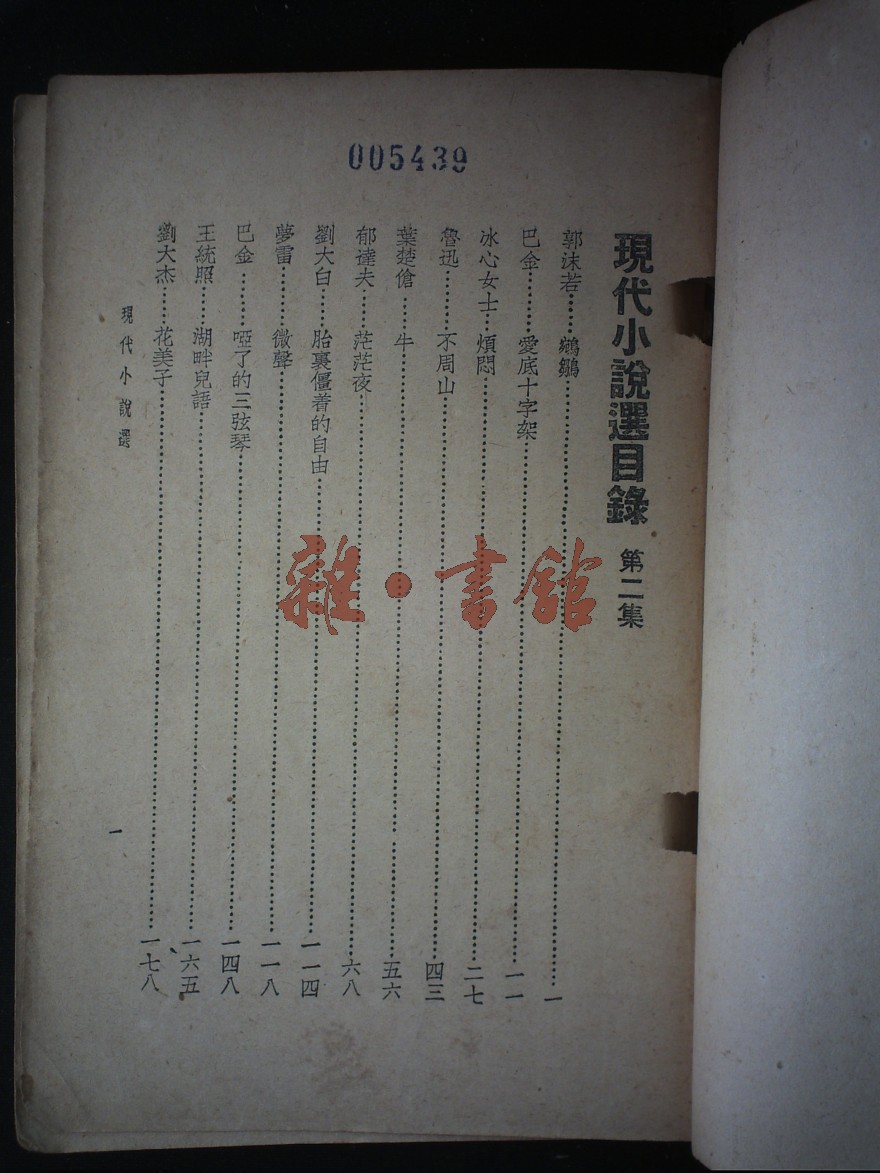 005439
現代小說選目錄 第二集
郭沫若……鵷鶵……一
巴金……愛底十字架……一一
冰心女士…煩悶……二七
魯迅……不周山……四三
葉楚傖……牛……五六
郁達夫……茫茫夜……六八
劉大白……胎裏僵着的自由……一一四
夢雷……微聲……一一八
巴金……啞了的三弦琴……一四八
王統照……湖畔兒語……一六五
劉大杰……花美子……一七八
現代小說選
一
雜·書館